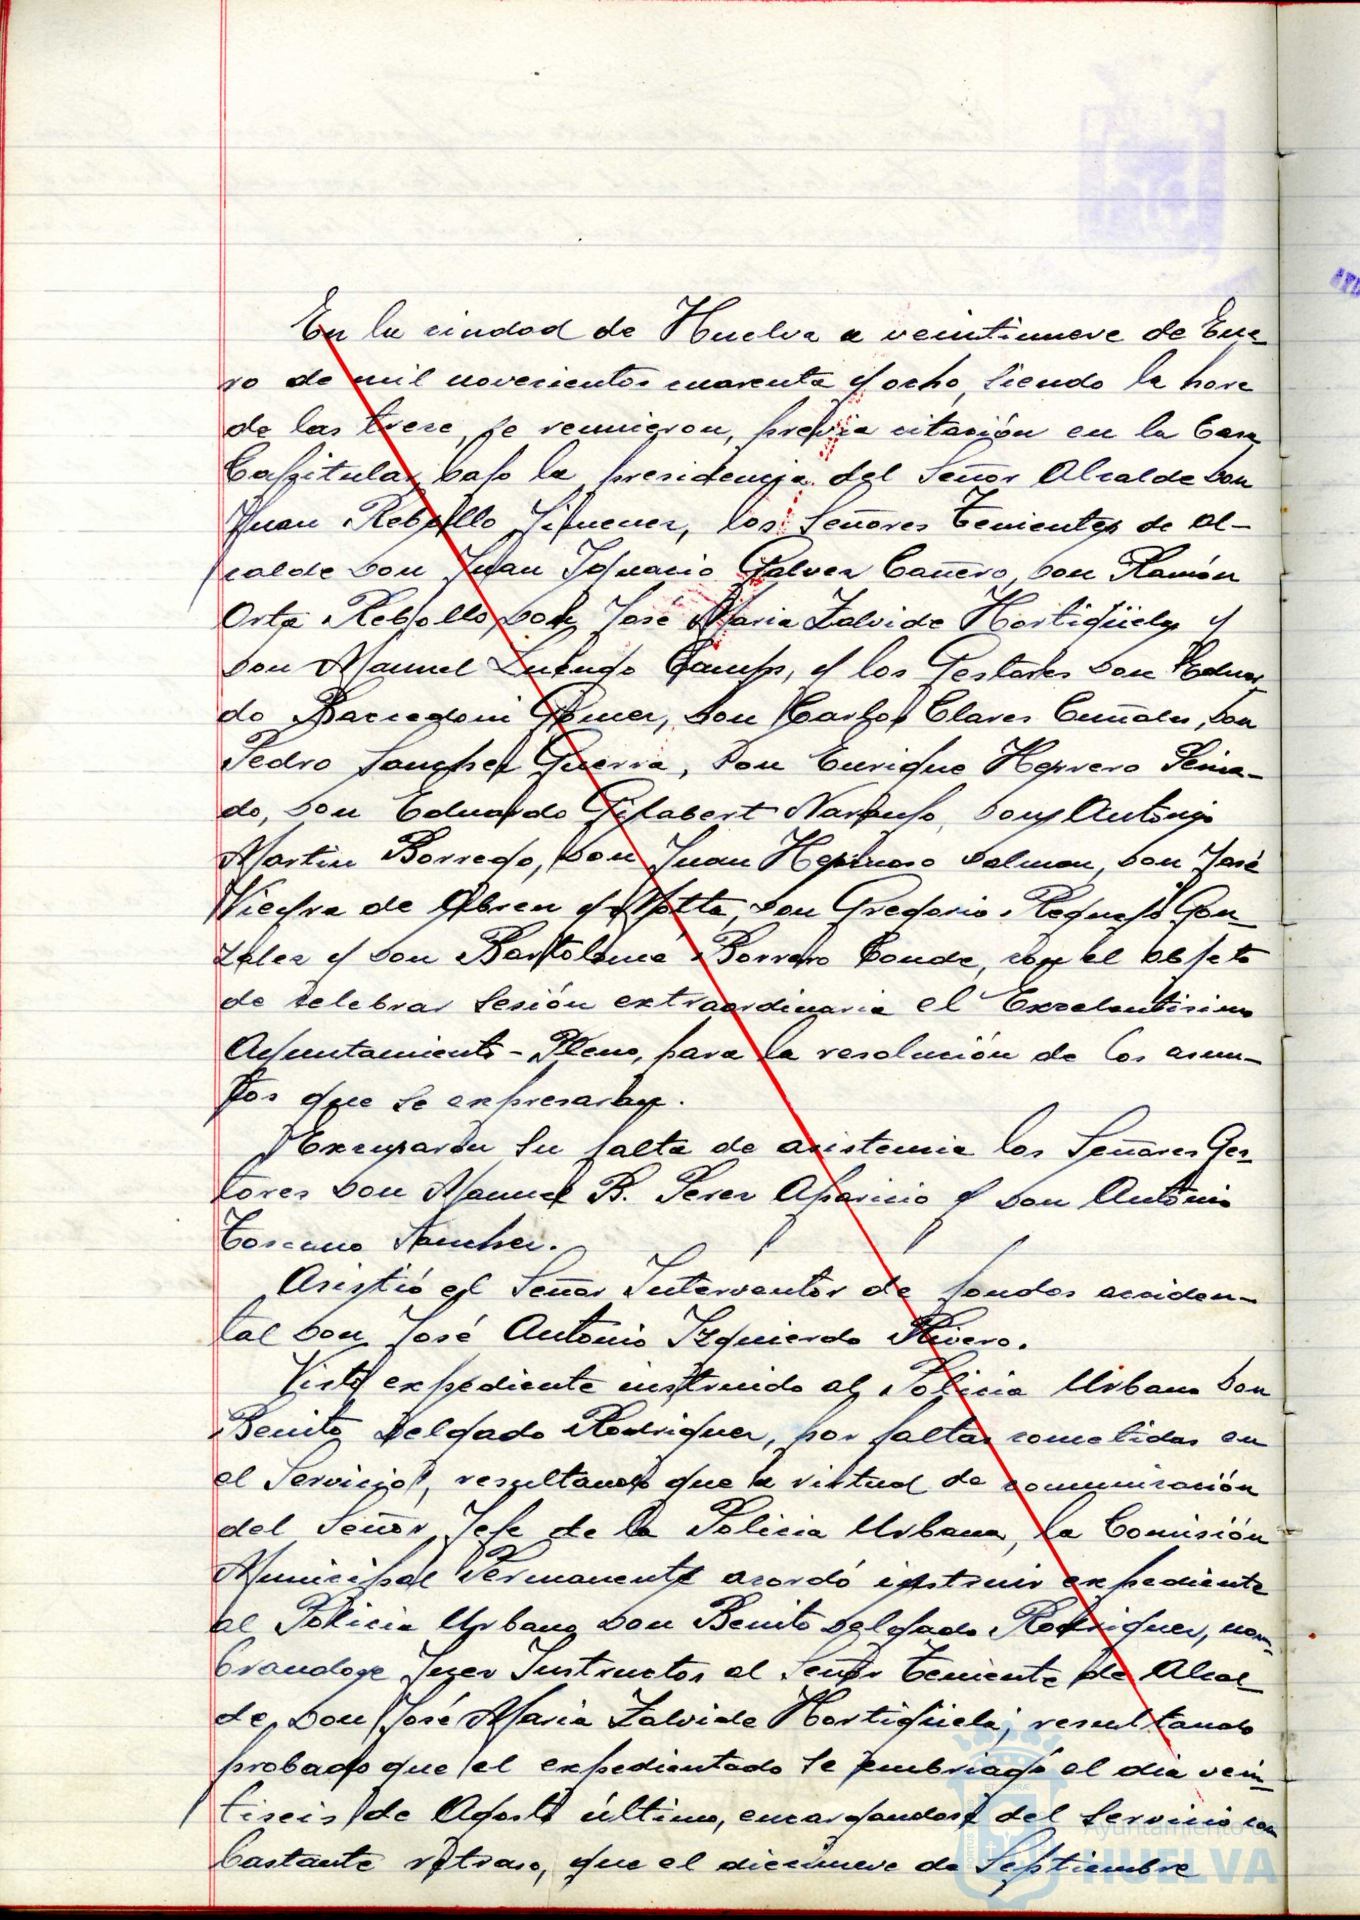 En la ciudad de Huelva a veintinueve de Ene-
ro de mil novecientos cuarenta y ocho, siendo la hora
de las trece, se reunieron, previa citación en la Casa
Capitular, bajo la presidencia del Señor Alcalde Don
Juan Rebollo Jimenez, los Señores Tenientes de Al-
calde Don Juan Ignacio Galvez Cañero, Don Ramón
Orta Rebollo, Don José Maria Zalvide Hortigüela y
Don Manuel Luengo Camps, y los Gestores Don Eduar-
do Gomez, Don Carlos Clares Don
Pedro Sanchez Guerra, Don Enrique Herrero
do, Don Eduardo Gilabert Naranjo, Don Antonio
Martin Borrego, Don Juan Hermoso Dalmau, Don José
Vieyra de Abreu y Motta, Don Gregorio Requejo Gon-
zalez y Don Bartolomé Borrero Conde, con el objeto
de celebrar sesión extraordinaria el Excelentisimo
Ayuntamiento-Pleno, para la resolución de los asun-
tos que se expresaran.
Excusaron su falta de asistencia los Señores Ges-
tores Don Manuel B. Perez Aparicio y Don Antonio
Toscano Sanchez.
Asistió el Señor Interventor de fondos acciden-
tal Don José Antonio Izquierdo Rivero.
Visto expediente instruido al Policia Urbano Don
Benito Delgado Rodriguez, por faltas cometidas en
el Servicio, resultando que a virtud de comunicación
del Señor Jefe de la Policia Urbana, la Comisión
Municipal Permanente acordó instruir expediente
al Policia Urbano Don Benito Delgado Rodriguez, nom-
brandose Juez Instructor al Señor Teniente de Alcal-
de, Don José Maria Zalvide Hortigüela; resultando
probado que el expedientado se embriagó el dia vein-
tiseis de Agosto último, encargandose del servicio con
bastante retraso, que el diecinueve de Septiembre
Ayuntamiento de
HUELVA